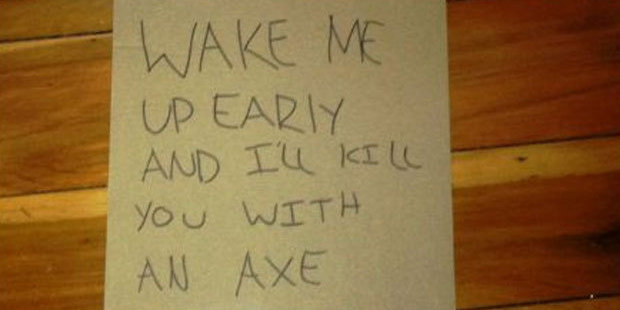 WAKE ME
UP EARlY
AND I'll KILL
YOU WITH
AN AXE